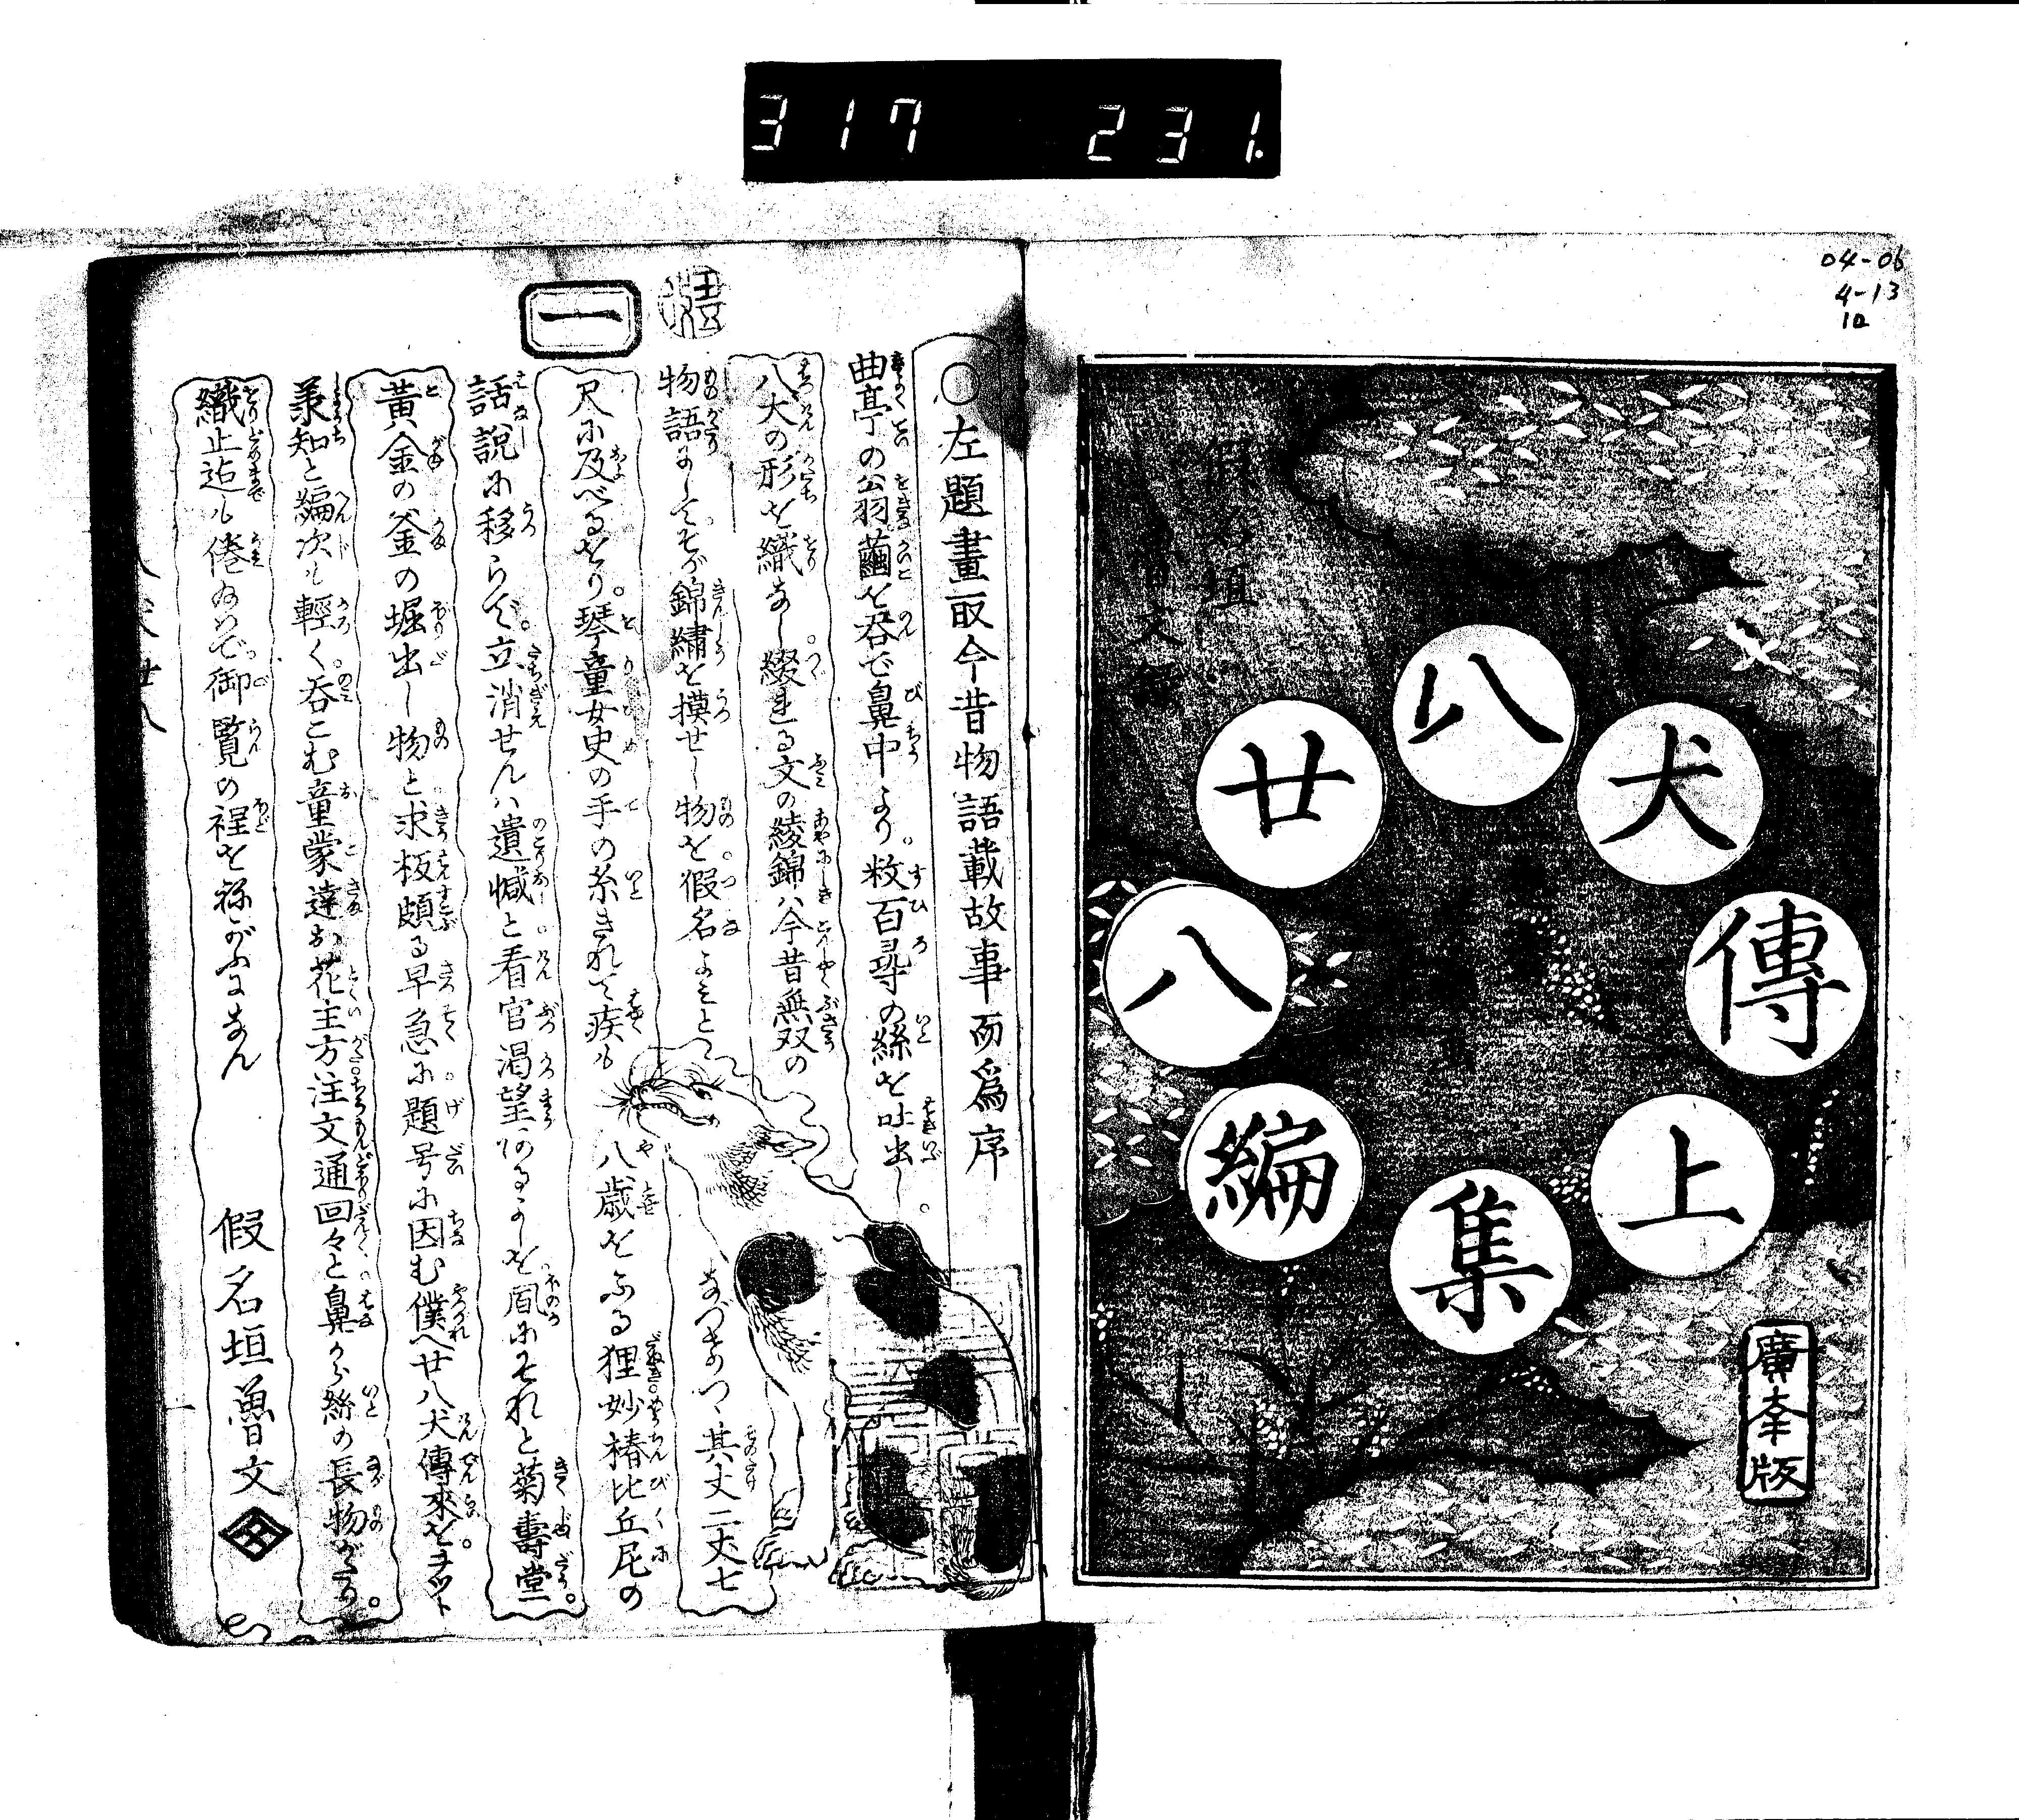 317 231.
04-06
4-13
10
八犬傳
廿八編
上集
廣岺版
假名垣
魯文
一
○左題畫取今昔物語載故事而爲序
曲亭の翁繭を呑で鼻中より。数百尋の絲を吐出し。
八犬の形を織なし。綴れる文の綾錦ハ今昔無双の
物語にして。そが錦繍を摸せし物を。假名よみと
なづきつゝ其丈二丈七
尺に及べるをり。琴童女史の手の糸きれて疾も
八歳をふる狸妙椿比丘尼の
話説に移らで。立消せんハ遺憾と。看官渇望あるよしを。風にそれと菊壽堂。
黄金の釜の堀出し物と。求板頗る早急に。題号に因む僕へ廿八犬傳來を。チョット
承知と編次も輕く。呑こむ童蒙達お花主方。注文通回々と。鼻から絲の長物がたり。
織止迄も倦ゐはで御覧の程を祢がふになん
假名垣魯文